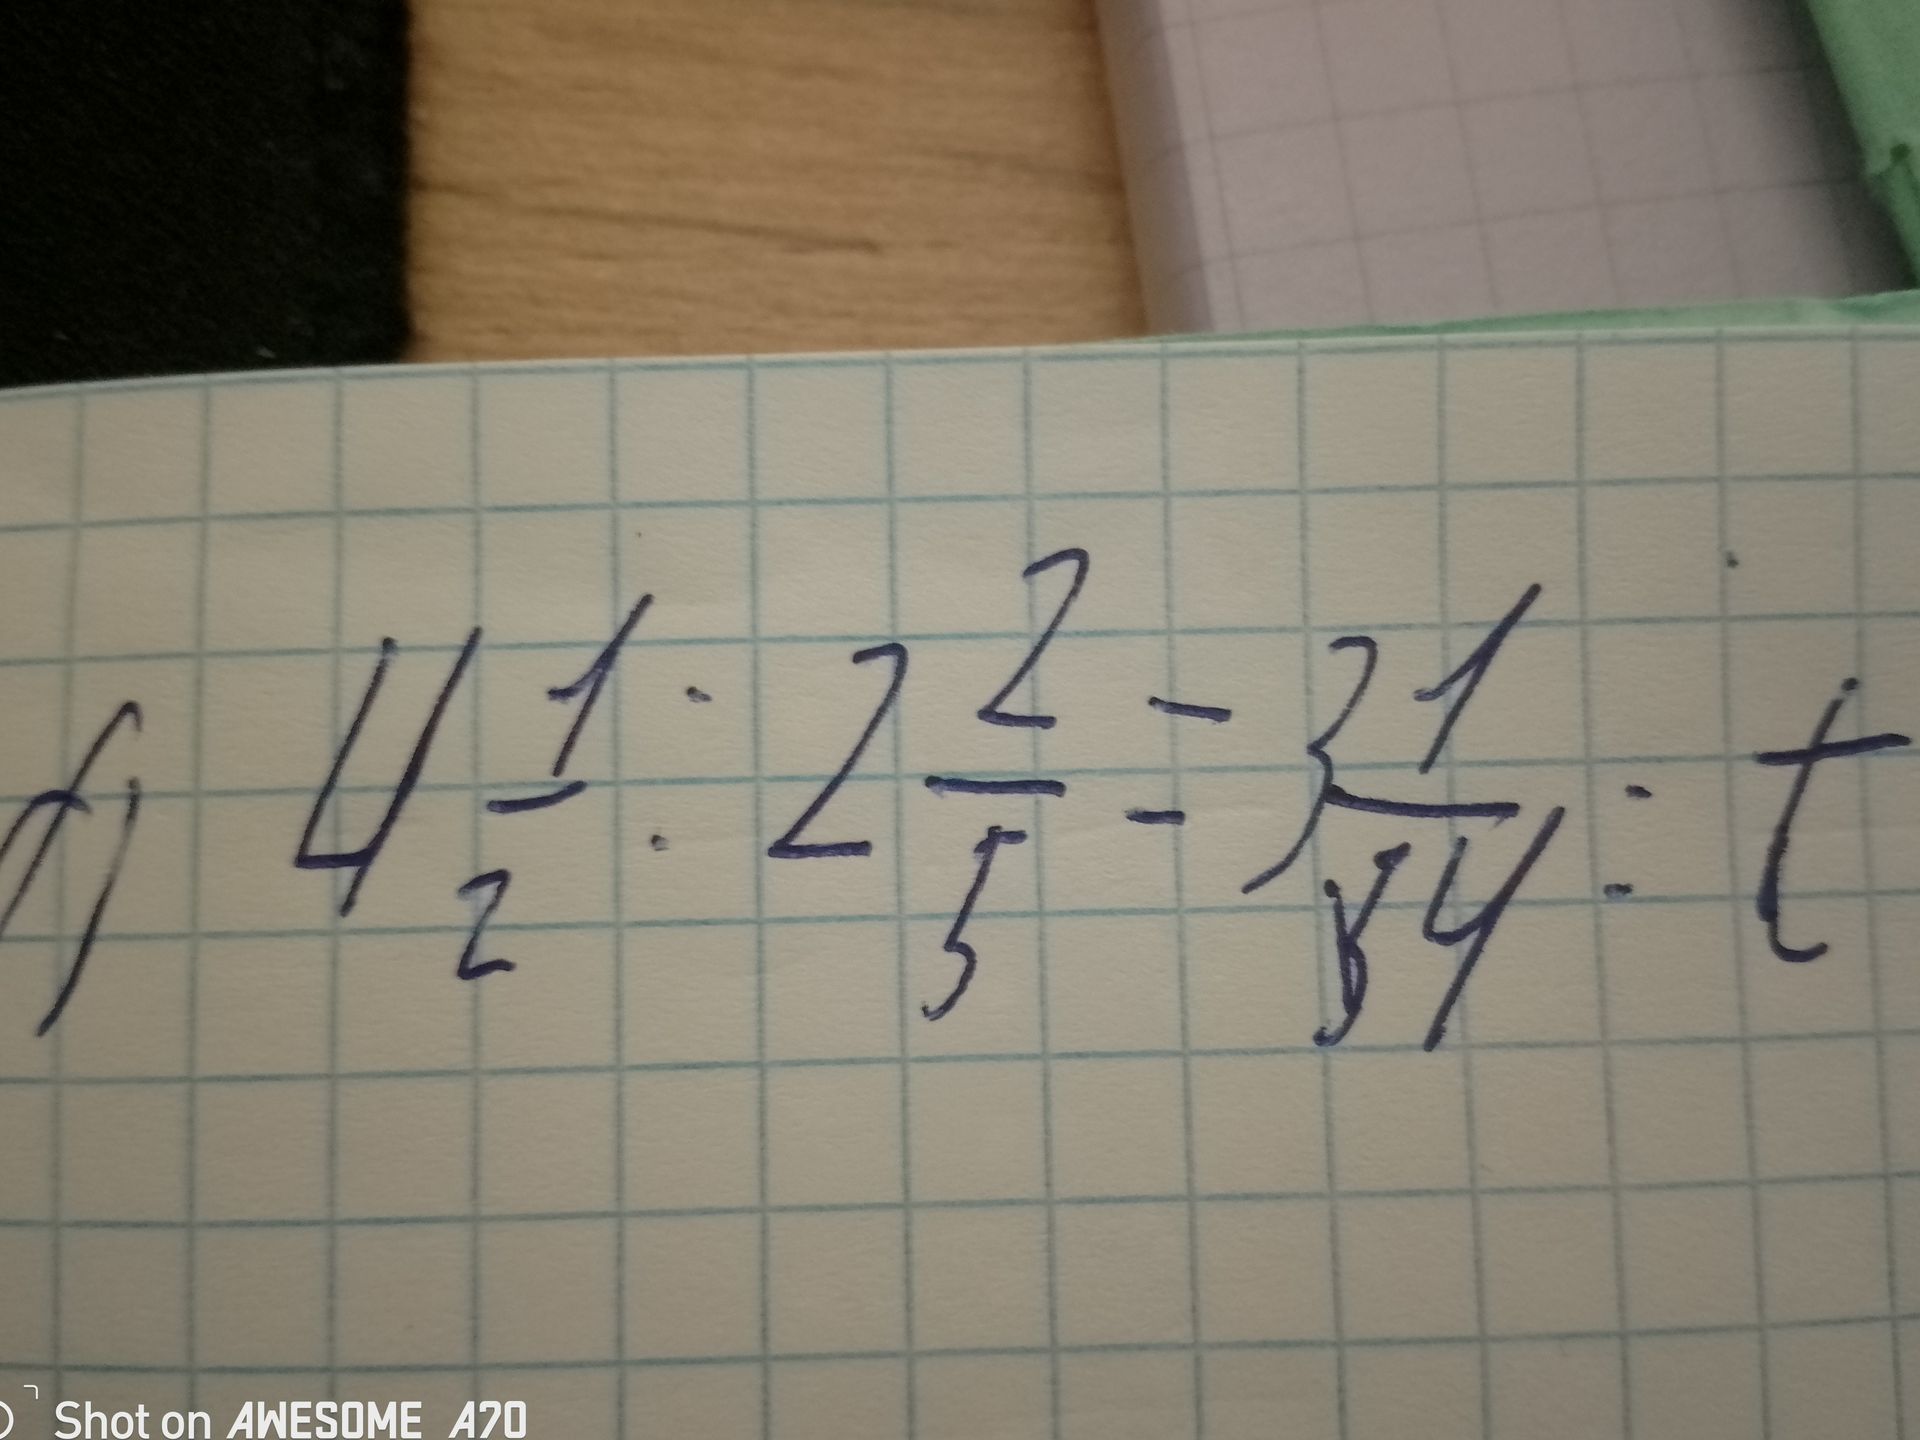 б) 4 1/2 : 2 2/5 = 3 1/84 : t
Shot on AWESOME A70